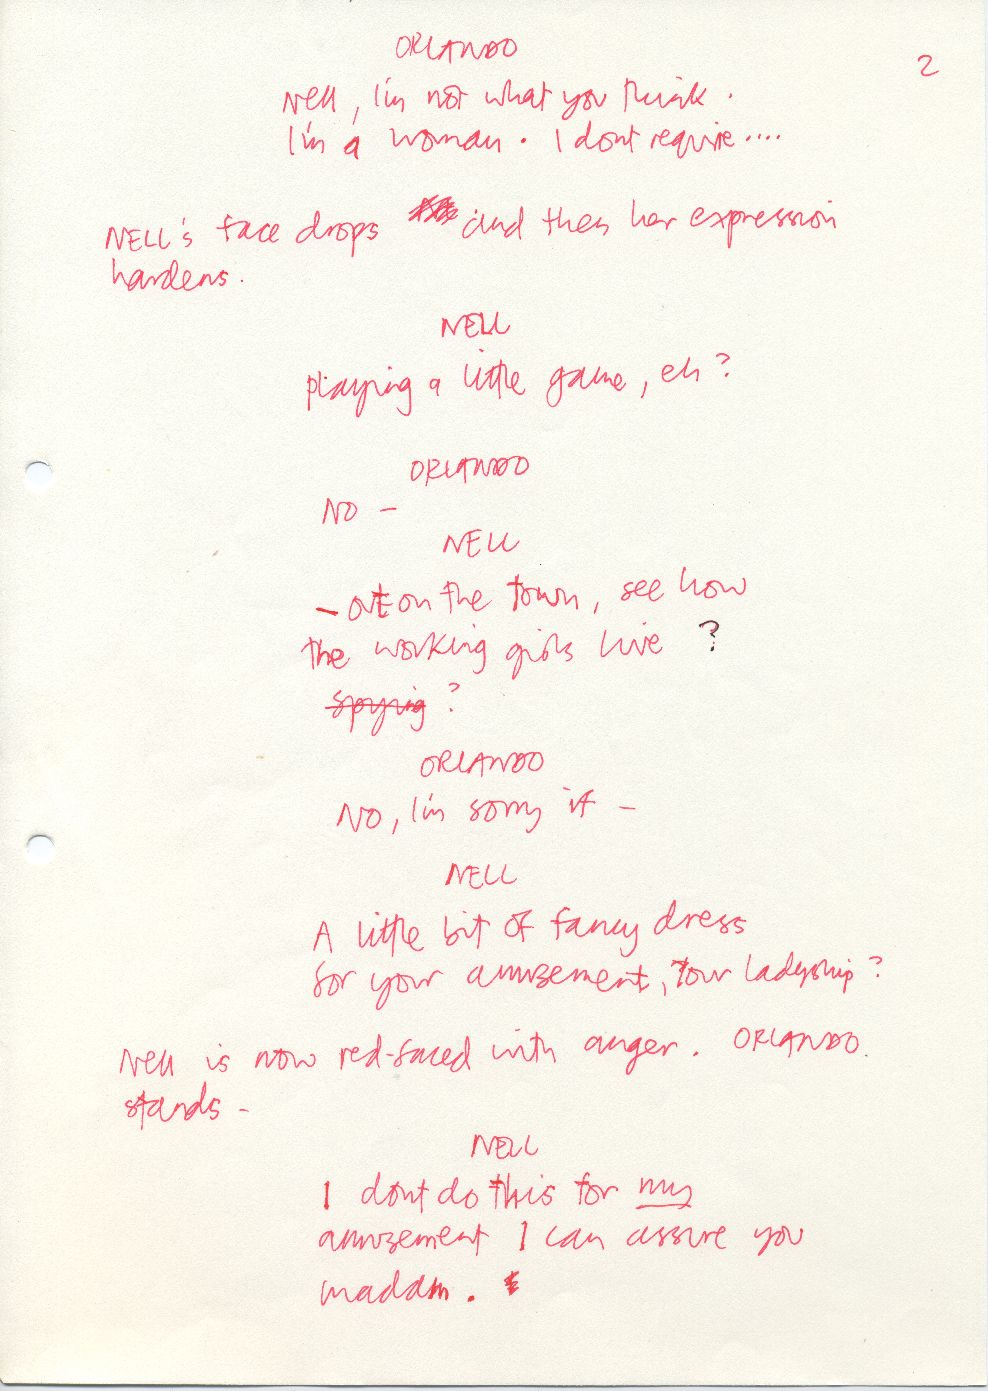 ORLANDO
2
Nell, I'm not what you think.
I'm a woman. I dont require....
NELL's face drops and then her expression
hardens.
NELL
Playing a little game, eh?
ORLANDO
NO -
NELL
- out on the town, see how
the working girls live ?
spying ?
ORLANDO
NO, I'm sorry if -
NELL
A little bit of fancy dress
for your amuzement, Your Ladyship?
Nell is now red-faced with anger. ORLANDO.
stands -
NELL
I dont do this for my
amuzement I can assure you
madam.